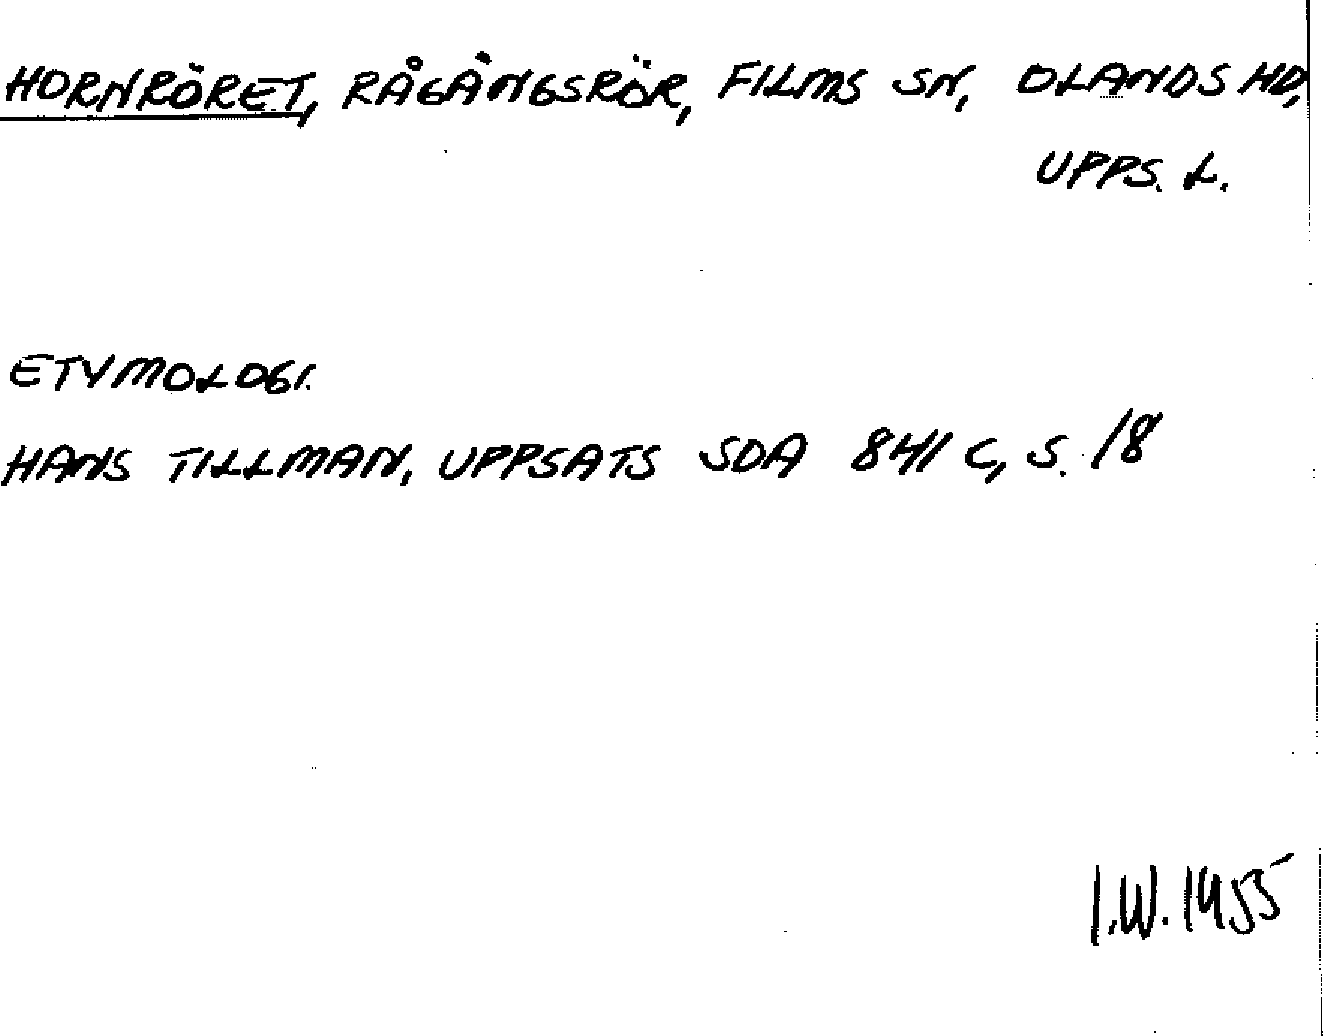 HORNRÖRET, RÅGÅNGSRÖR, FILMS SN, OLANDS HD,
UPPS. L.
ETYMOLOGI.
HANS TILLMAN, UPPSATS SOA 841 C, S. 18
I.W. 1955